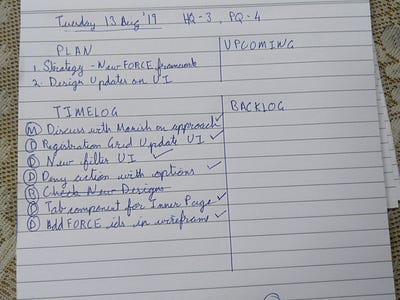 Tuesday 13 Aug '19 HQ-3, PQ-4
PLAN
1. Strategy - New FORCE framework
2. Design Updates on UI
UPCOMING
TIMELOG
M Discuss with Manish on approach ✓
D Registration Grid Update UI ✓
D New filter UI ✓
D Deny action with options ✓
B Check New Designs
D Tab component for Inner Page ✓
D Add FORCE ids in wireframe ✓
BACKLOG